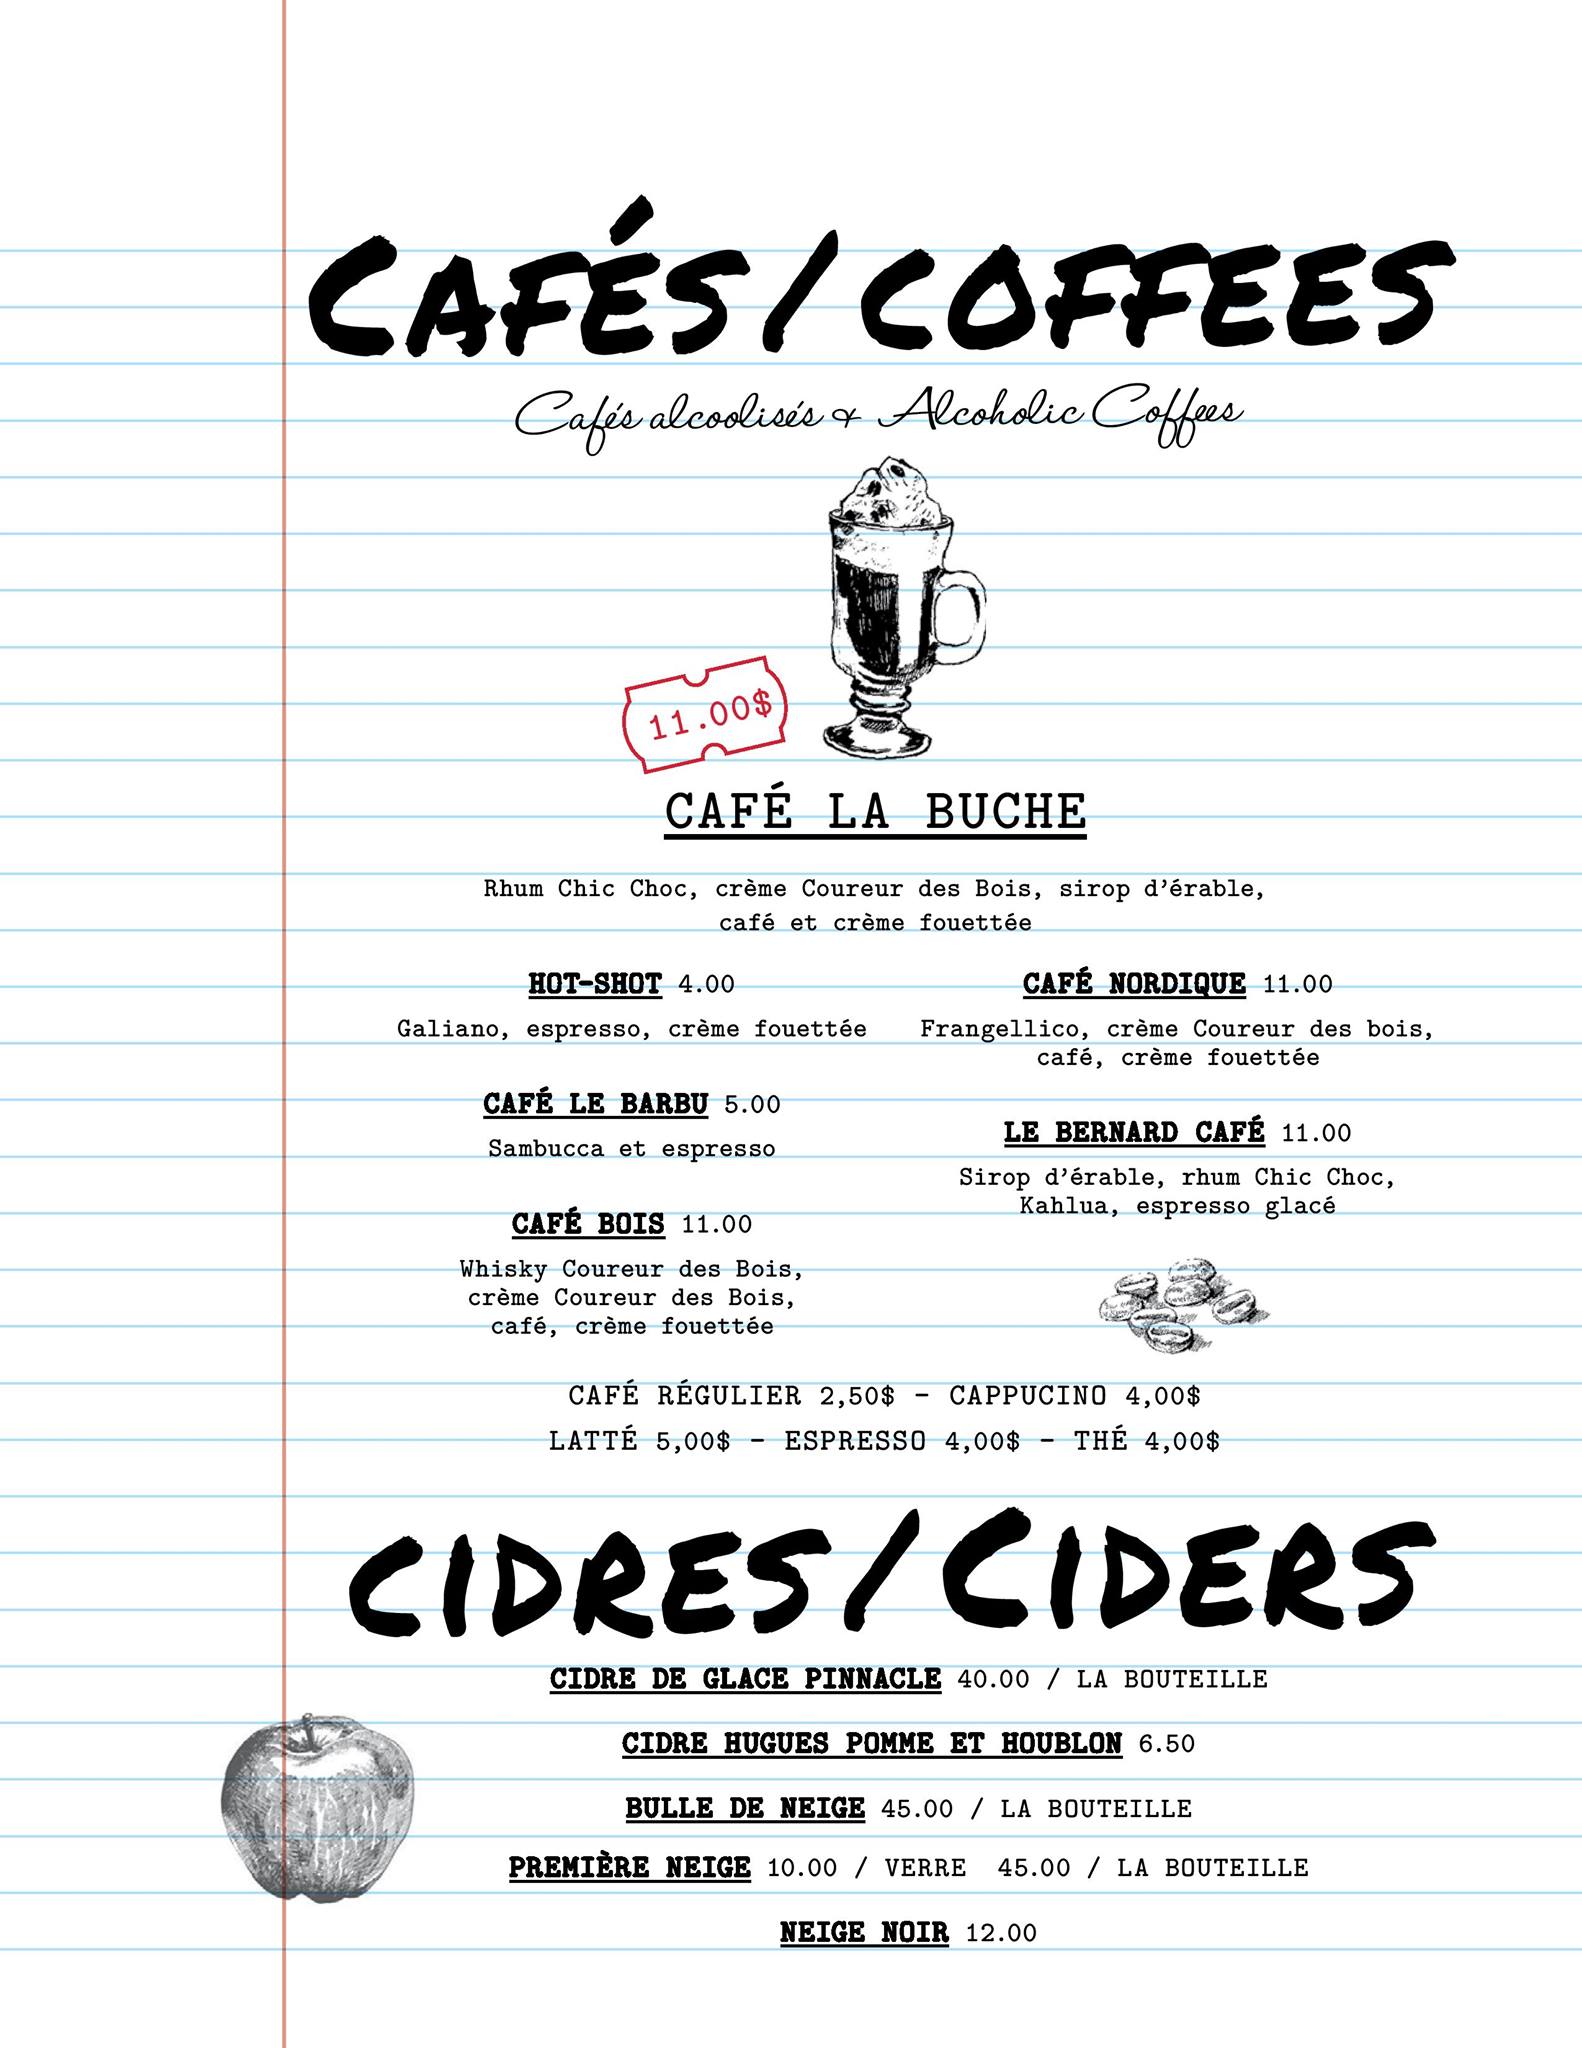 CAFÉS/COFFEES
Cafés alcoolisés & Alcoholic Coffees
11.00$
CAFÉ LA BUCHE
Rhum Chic Choc, crème Coureur des Bois, sirop d'érable,
café et crème fouettée
HOT-SHOT 4.00
Galiano, espresso, crème fouettée
CAFÉ LE BARBU 5.00
Sambucca et espresso
CAFÉ BOIS 11.00
Whisky Coureur des Bois,
crème Coureur des Bois,
café, crème fouettée
CAFÉ NORDIQUE 11.00
Frangellico, crème Coureur des bois,
café, crème fouettée
LE BERNARD CAFÉ 11.00
Sirop d'érable, rhum Chic Choc,
Kahlua, espresso glacé
CAFÉ RÉGULIER 2,50$ - CAPPUCINO 4,00$
LATTÉ 5,00$ - ESPRESSO 4,00$ - THÉ 4,00$
CIDRES/CIDERS
CIDRE DE GLACE PINNACLE 40.00 / LA BOUTEILLE
CIDRE HUGUES POMME ET HOUBLON 6.50
BULLE DE NEIGE 45.00 / LA BOUTEILLE
PREMIÈRE NEIGE 10.00 / VERRE 45.00 / LA BOUTEILLE
NEIGE NOIR 12.00